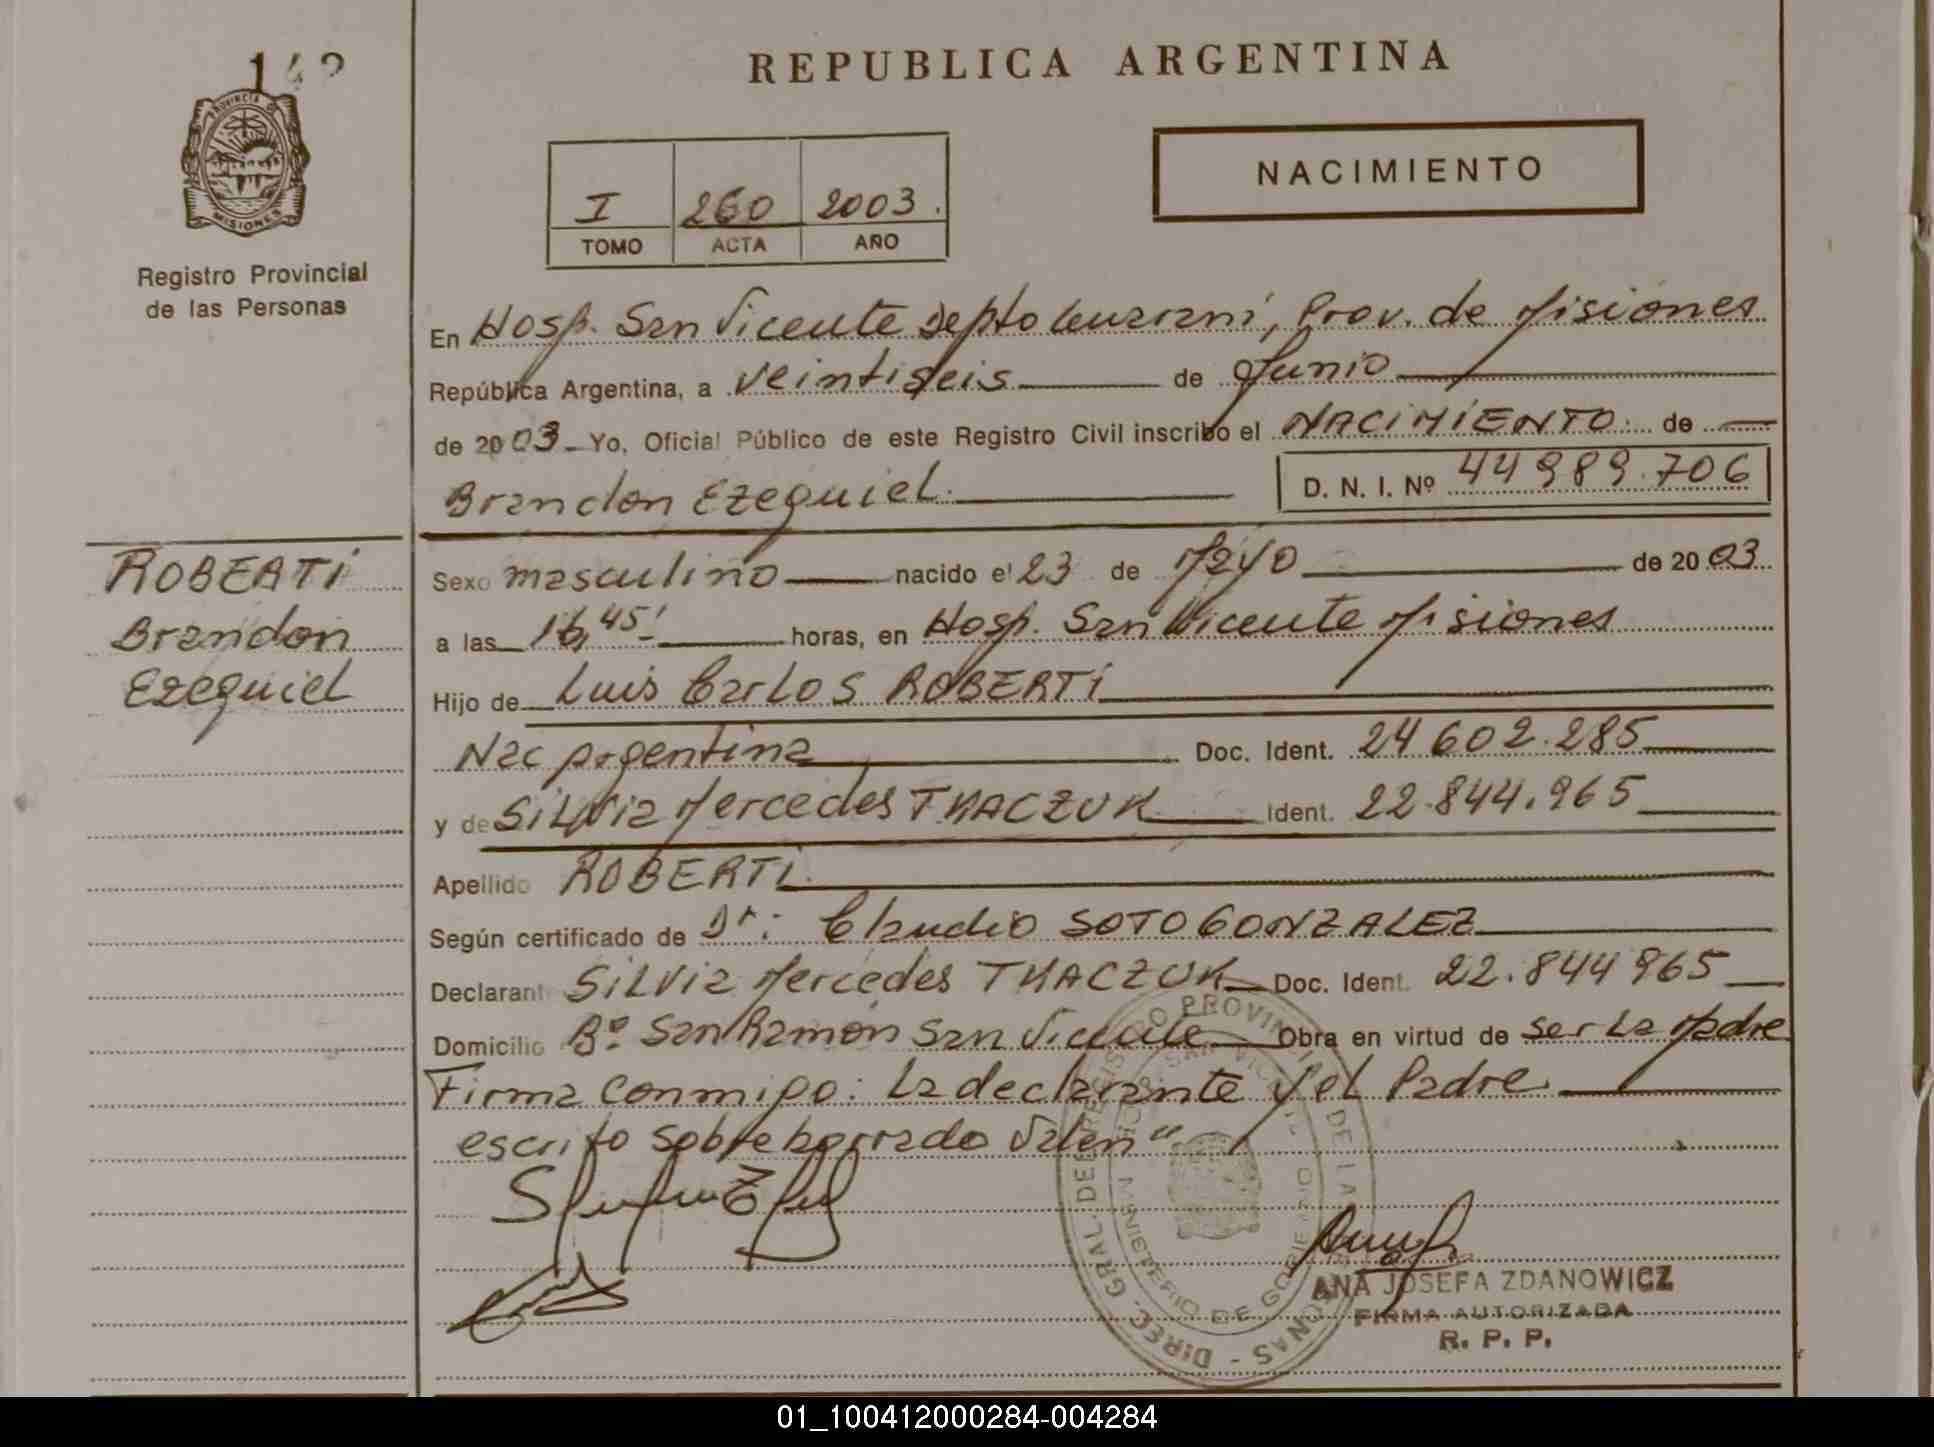 REPUBLICA ARGENTINA
PROVINCIA DE
MISIONES
Registro Provincial
de las Personas
NACIMIENTO
I 260 2003.
TOMO ACTA AÑO
En Hosp. San Vicente Depto Guarani, Prov. de Misiones
República Argentina, a veintiseis de Junio
de 2003 Yo, Oficial Público de este Registro Civil inscribo el NACIMIENTO de
Brandon Ezequiel. D. N. I. Nº 44989.706
ROBERTI
Brandon
Ezequiel
Sexo masculino nacido el 23 de Mayo de 2003
a las 16,45' horas, en Hosp. San Vicente Misiones
Hijo de Luis Carlos ROBERTI
Nac Argentina Doc. Ident. 24 602.285
y de Silvia Mercedes TKACZUK Ident. 22.844.965
Apellido ROBERTI
Según certificado de Dr: Claudio SOTO GONZALEZ
Declarant Silvia Mercedes TKACZUK Doc. Ident. 22.844 965
Domicilio Bº San Ramón San Vicente Obra en virtud de ser la Madre
Firma conmigo: La declarante y el Padre.
escrito sobre borrado Valen"
DIREC. GRAL. DEL REGISTRO PROVINCIAL DE LAS PERSONAS -
MINISTERIO DE GOBIERNO
SAN VICENTE
ANA JOSEFA ZDANOWICZ
FIRMA AUTORIZADA
R. P. P.
01_100412000284-004284